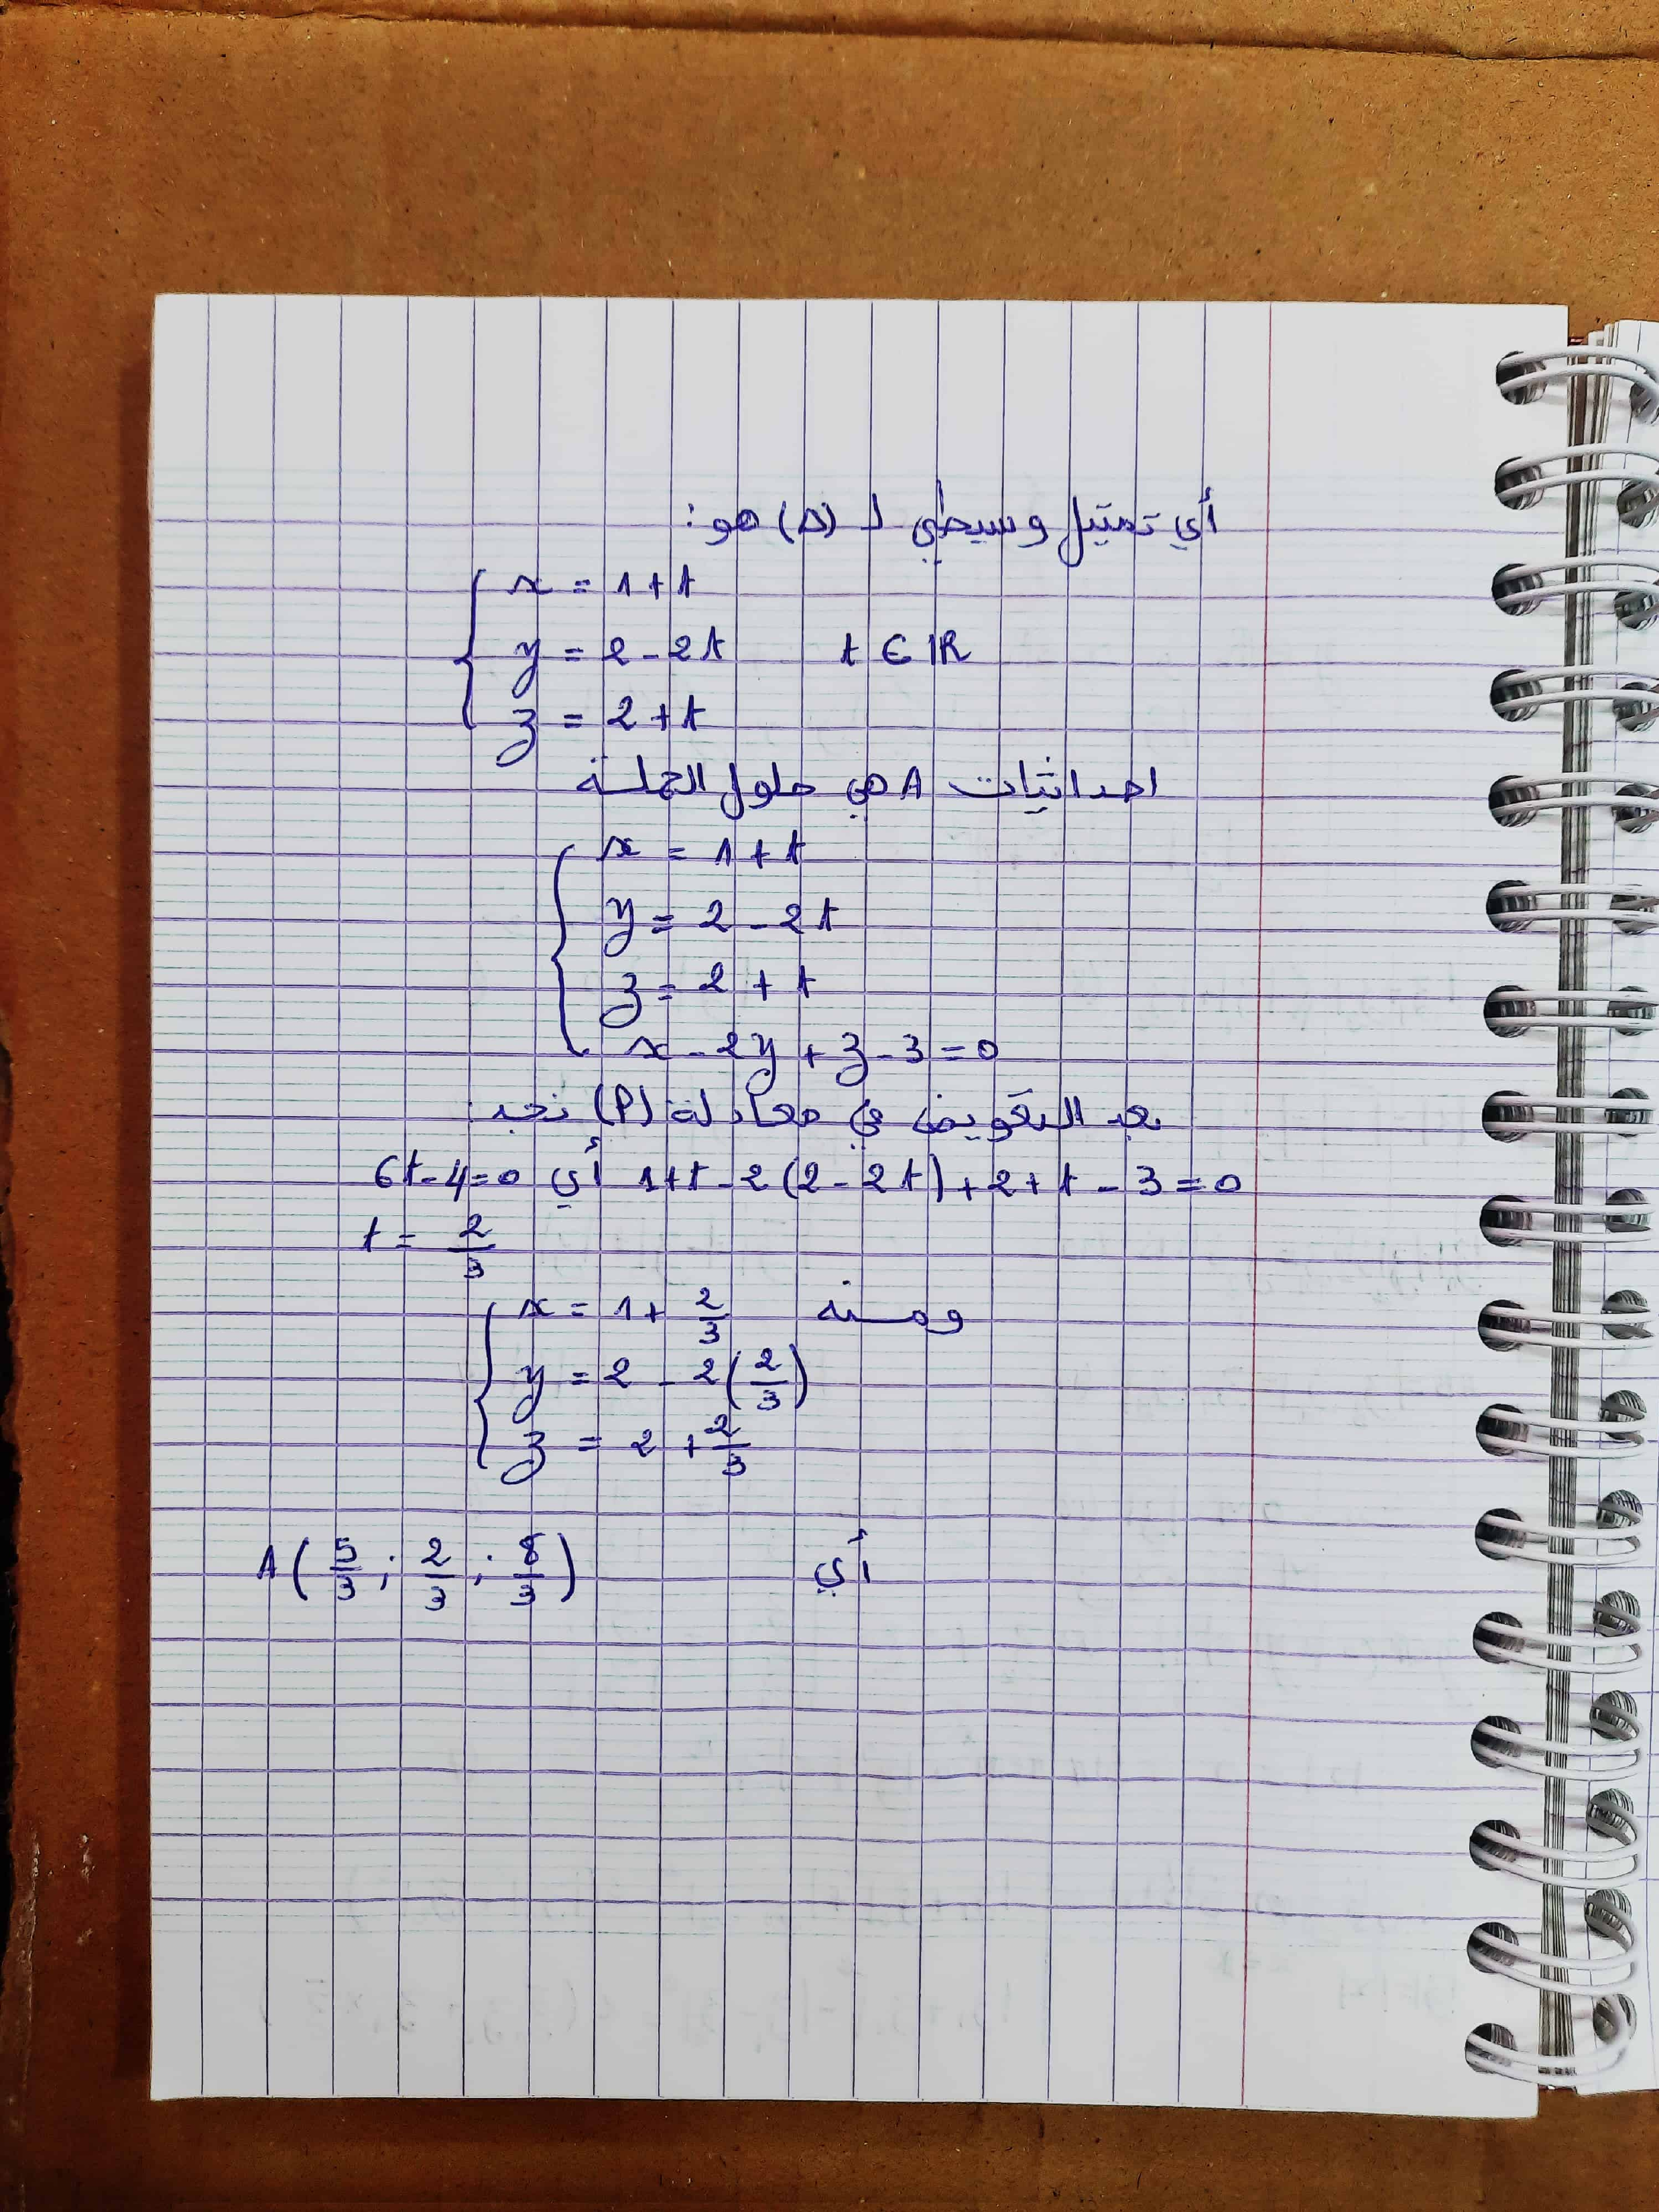 أي تمثيل وسيطي لـ (Δ) هو:
x = 1 + t
y = 2 - 2t t ∈ IR
z = 2 + t
احداثيات A هي حلول الجملة
x = 1 + t
y = 2 - 2t
z = 2 + t
x - 2y + z - 3 = 0
بعد التعويض في معادلة (P) نجد:
1+t - 2(2 - 2t) + 2 + t - 3 = 0 أي 6t - 4 = 0
t = 2/3
ومنه x = 1 + 2/3
y = 2 - 2(2/3)
z = 2 + 2/3
أي A(5/3 ; 2/3 ; 8/3)